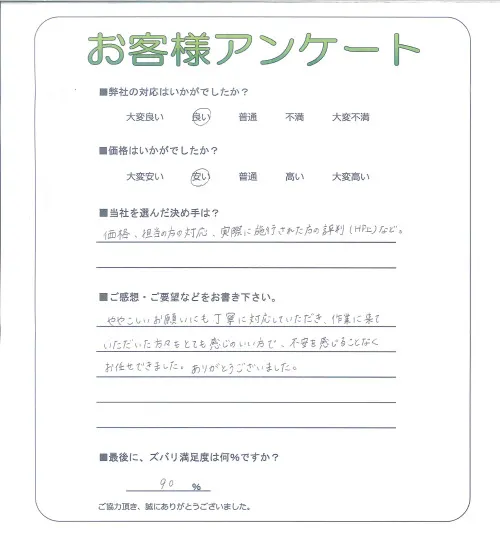 お客様アンケート
■弊社の対応はいかがでしたか？
大変良い 良い 普通 不満 大変不満
■価格はいかがでしたか？
大変安い 安い 普通 高い 大変高い
■当社を選んだ決め手は？
価格、担当の方の対応、実際に施行された方の評判(HP上)など。
■ご感想・ご要望などをお書き下さい。
ややこしいお願いにも丁寧に対応していただき、作業に来て
いただいた方々もとても感じのいい方で、不安を感じることなく
お任せできました。ありがとうございました。
■最後に、ズバリ満足度は何%ですか？
90 %
ご協力頂き、誠にありがとうございました。